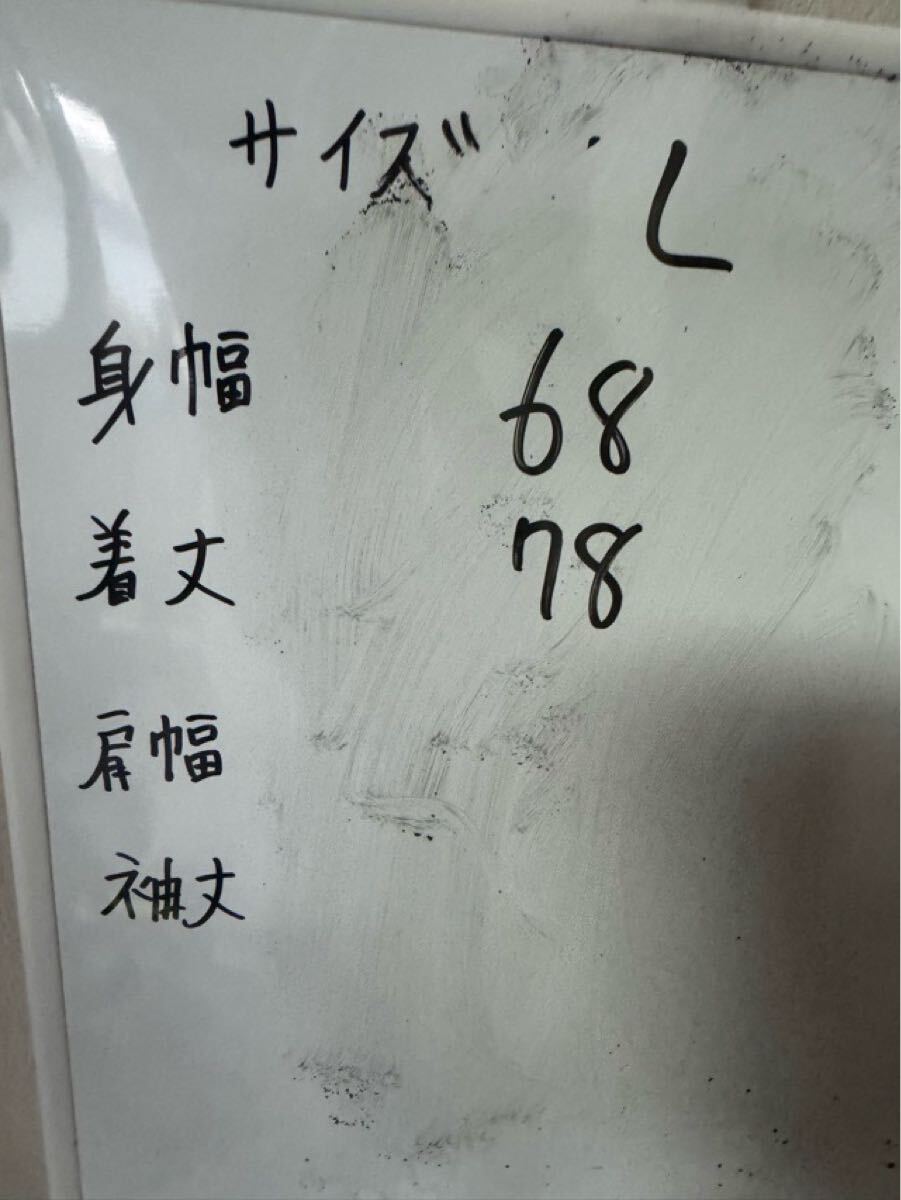 サイズ L
身幅 68
着丈 78
肩幅
袖丈